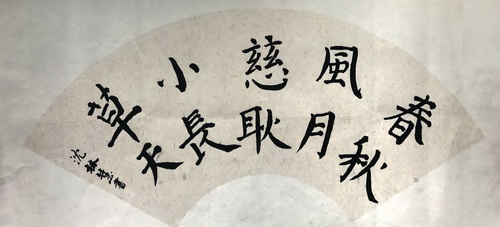 春秋
風月
慈耿
小長
草天
沈 書